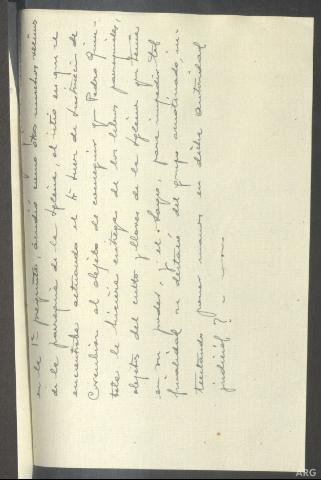 en la 1ª pregunta, acudió como otros muchos vecinos
de la parroquia de la Iglesia, al sitio en que se
encontraba actuando el Sr Juez de Instrucción de
Corcubion al objeto de conseguir q Pedro Quin-
tela le hiciera entrega de los libros parroquiales,
objetos del culto y llaves de la Iglesia que tenía
en su poder, y el obligó, para impedir tal
finalidad se destacó del grupo amotinado, in-
tentando poner manos en dicha autoridad
judicial?
ARG